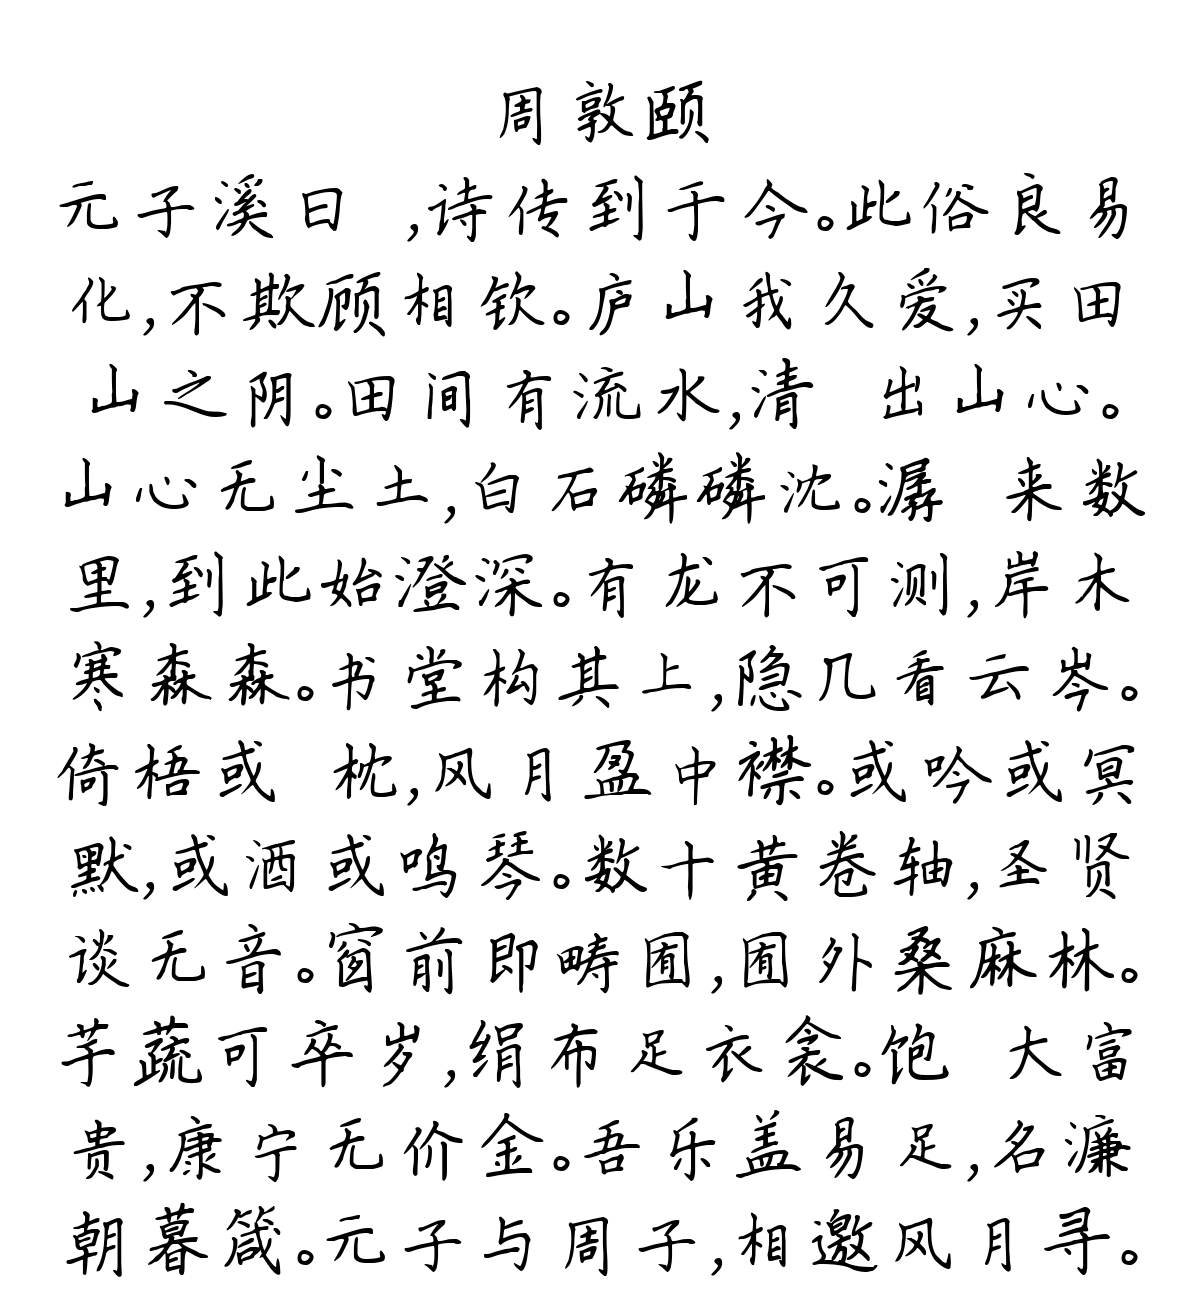 周敦颐
元子溪曰 ,诗传到于今。此俗良易
化,不欺顾相钦。庐山我久爱,买田
山之阴。田间有流水,清 出山心。
山心无尘土,白石磷磷沈。潺 来数
里,到此始澄深。有龙不可测,岸木
寒森森。书堂构其上,隐几看云岑。
倚梧或 枕,风月盈中襟。或吟或冥
默,或酒或鸣琴。数十黄卷轴,圣贤
谈无音。窗前即畴囿,囿外桑麻林。
芋蔬可卒岁,绢布足衣衾。饱 大富
贵,康宁无价金。吾乐盖易足,名濂
朝暮箴。元子与周子,相邀风月寻。